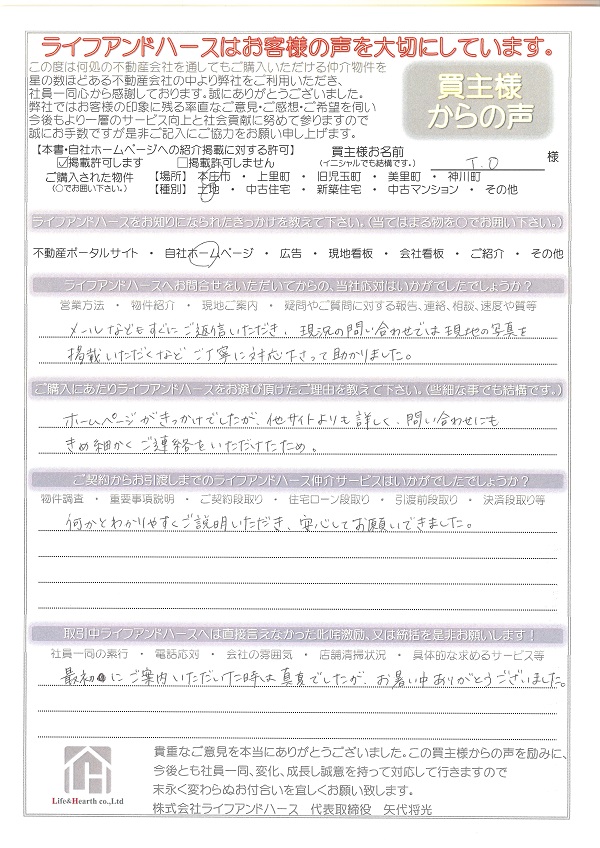 ライフアンドハースはお客様の声を大切にしています。
この度は何処の不動産会社を通してもご購入いただける仲介物件を
星の数ほどある不動産会社の中より弊社をご利用いただき、
社員一同心から感謝しております。誠にありがとうございました。
弊社ではお客様の印象に残る率直なご意見・ご感想・ご希望を伺い
今後もより一層のサービス向上と社会貢献に努めて参りますので
誠にお手数ですが是非ご記入にご協力をお願い申し上げます。
買主様
からの声
【本書・自社ホームページへの紹介掲載に対する許可】
☑掲載許可します □掲載許可しません
買主様お名前
(イニシャルでも結構です。)
T.O 様
ご購入された物件
(○でお囲い下さい。)
【場所】 本庄市 ・ 上里町 ・ 旧児玉町 ・ 美里町 ・ 神川町
【種別】 土地 ・ 中古住宅 ・ 新築住宅 ・ 中古マンション ・ その他
ライフアンドハースをお知りになられたきっかけを教えて下さい。(当てはまる物を○でお囲い下さい。)
不動産ポータルサイト ・ 自社ホームページ ・ 広告 ・ 現地看板 ・ 会社看板 ・ ご紹介 ・ その他
ライフアンドハースへお問合せをいただいてからの、当社応対はいかがでしたでしょうか?
営業方法 ・ 物件紹介 ・ 現地ご案内 ・ 疑問やご質問に対する報告、連絡、相談、速度や質等
メールなどもすぐにご返信いただき、現況の問い合わせでは現地の写真を
掲載いただくなどご丁寧に対応下さって助かりました。
ご購入にあたりライフアンドハースをお選び頂けたご理由を教えて下さい。(些細な事でも結構です。)
ホームページがきっかけでしたが、他サイトよりも詳しく、問い合わせにも
きめ細かくご連絡をいただけたため。
ご契約からお引渡しまでのライフアンドハース仲介サービスはいかがでしたでしょうか?
物件調査 ・ 重要事項説明 ・ ご契約段取り ・ 住宅ローン段取り ・ 引渡前段取り ・ 決済段取り等
何かとわかりやすくご説明いただき、安心してお願いできました。
取引中ライフアンドハースへは直接言えなかった叱咤激励、又は統括を是非お願いします!
社員一同の素行 ・ 電話応対 ・ 会社の雰囲気 ・ 店舗清掃状況 ・ 具体的な求めるサービス等
最初にご案内いただいた時は真夏でしたが、お暑い中ありがとうございました。
貴重なご意見を本当にありがとうございました。この買主様からの声を励みに、
今後とも社員一同、変化、成長し誠意を持って対応して行きますので
末永く変わらぬお付合いを宜しくお願い致します。
Life&Hearth co.,Ltd
株式会社ライフアンドハース 代表取締役 矢代将光